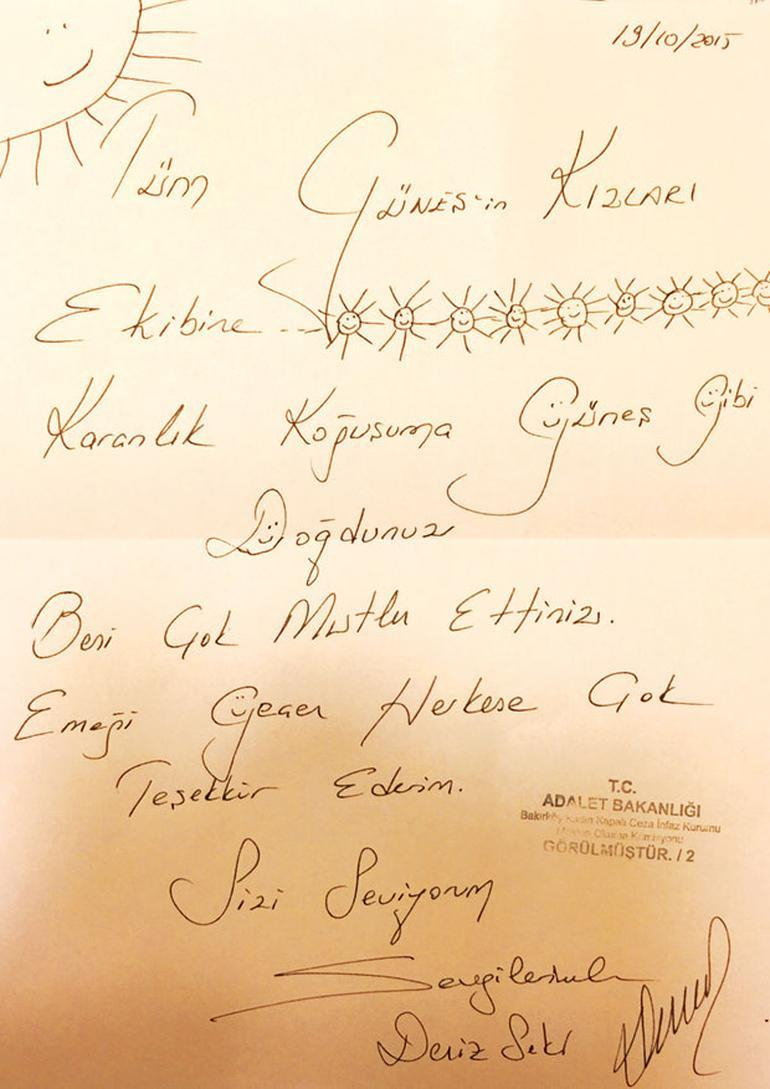 19/10/2015
Tüm GÜNEŞ'in KIZLARI
Ekibine ...
Karanlık Koğuşuma Güneş Gibi
Doğdunuz
Beni Çok Mutlu Ettiniz.
Emeği Geçen Herkese Çok
Teşekkür Ederim.
T.C.
ADALET BAKANLIĞI
Bakırköy Kadın Kapalı Ceza İnfaz Kurumu
Mektup Okuma Komisyonu
GÖRÜLMÜŞTÜR. / 2
Sizi Seviyorum
Sevgilerimle
Deniz Seki